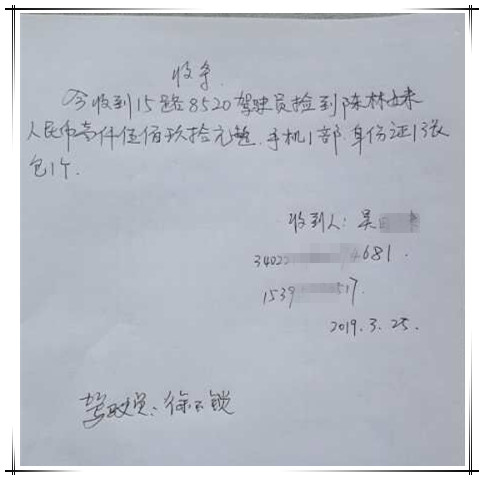 收条
今收到15路8520驾驶员捡到陈林妹
人民币壹仟伍佰玖拾元整.手机1部.身份证1张
包1个.
收到人:吴
34022 4681.
1539 517.
2019.3.25.
驾驶员:徐不锁